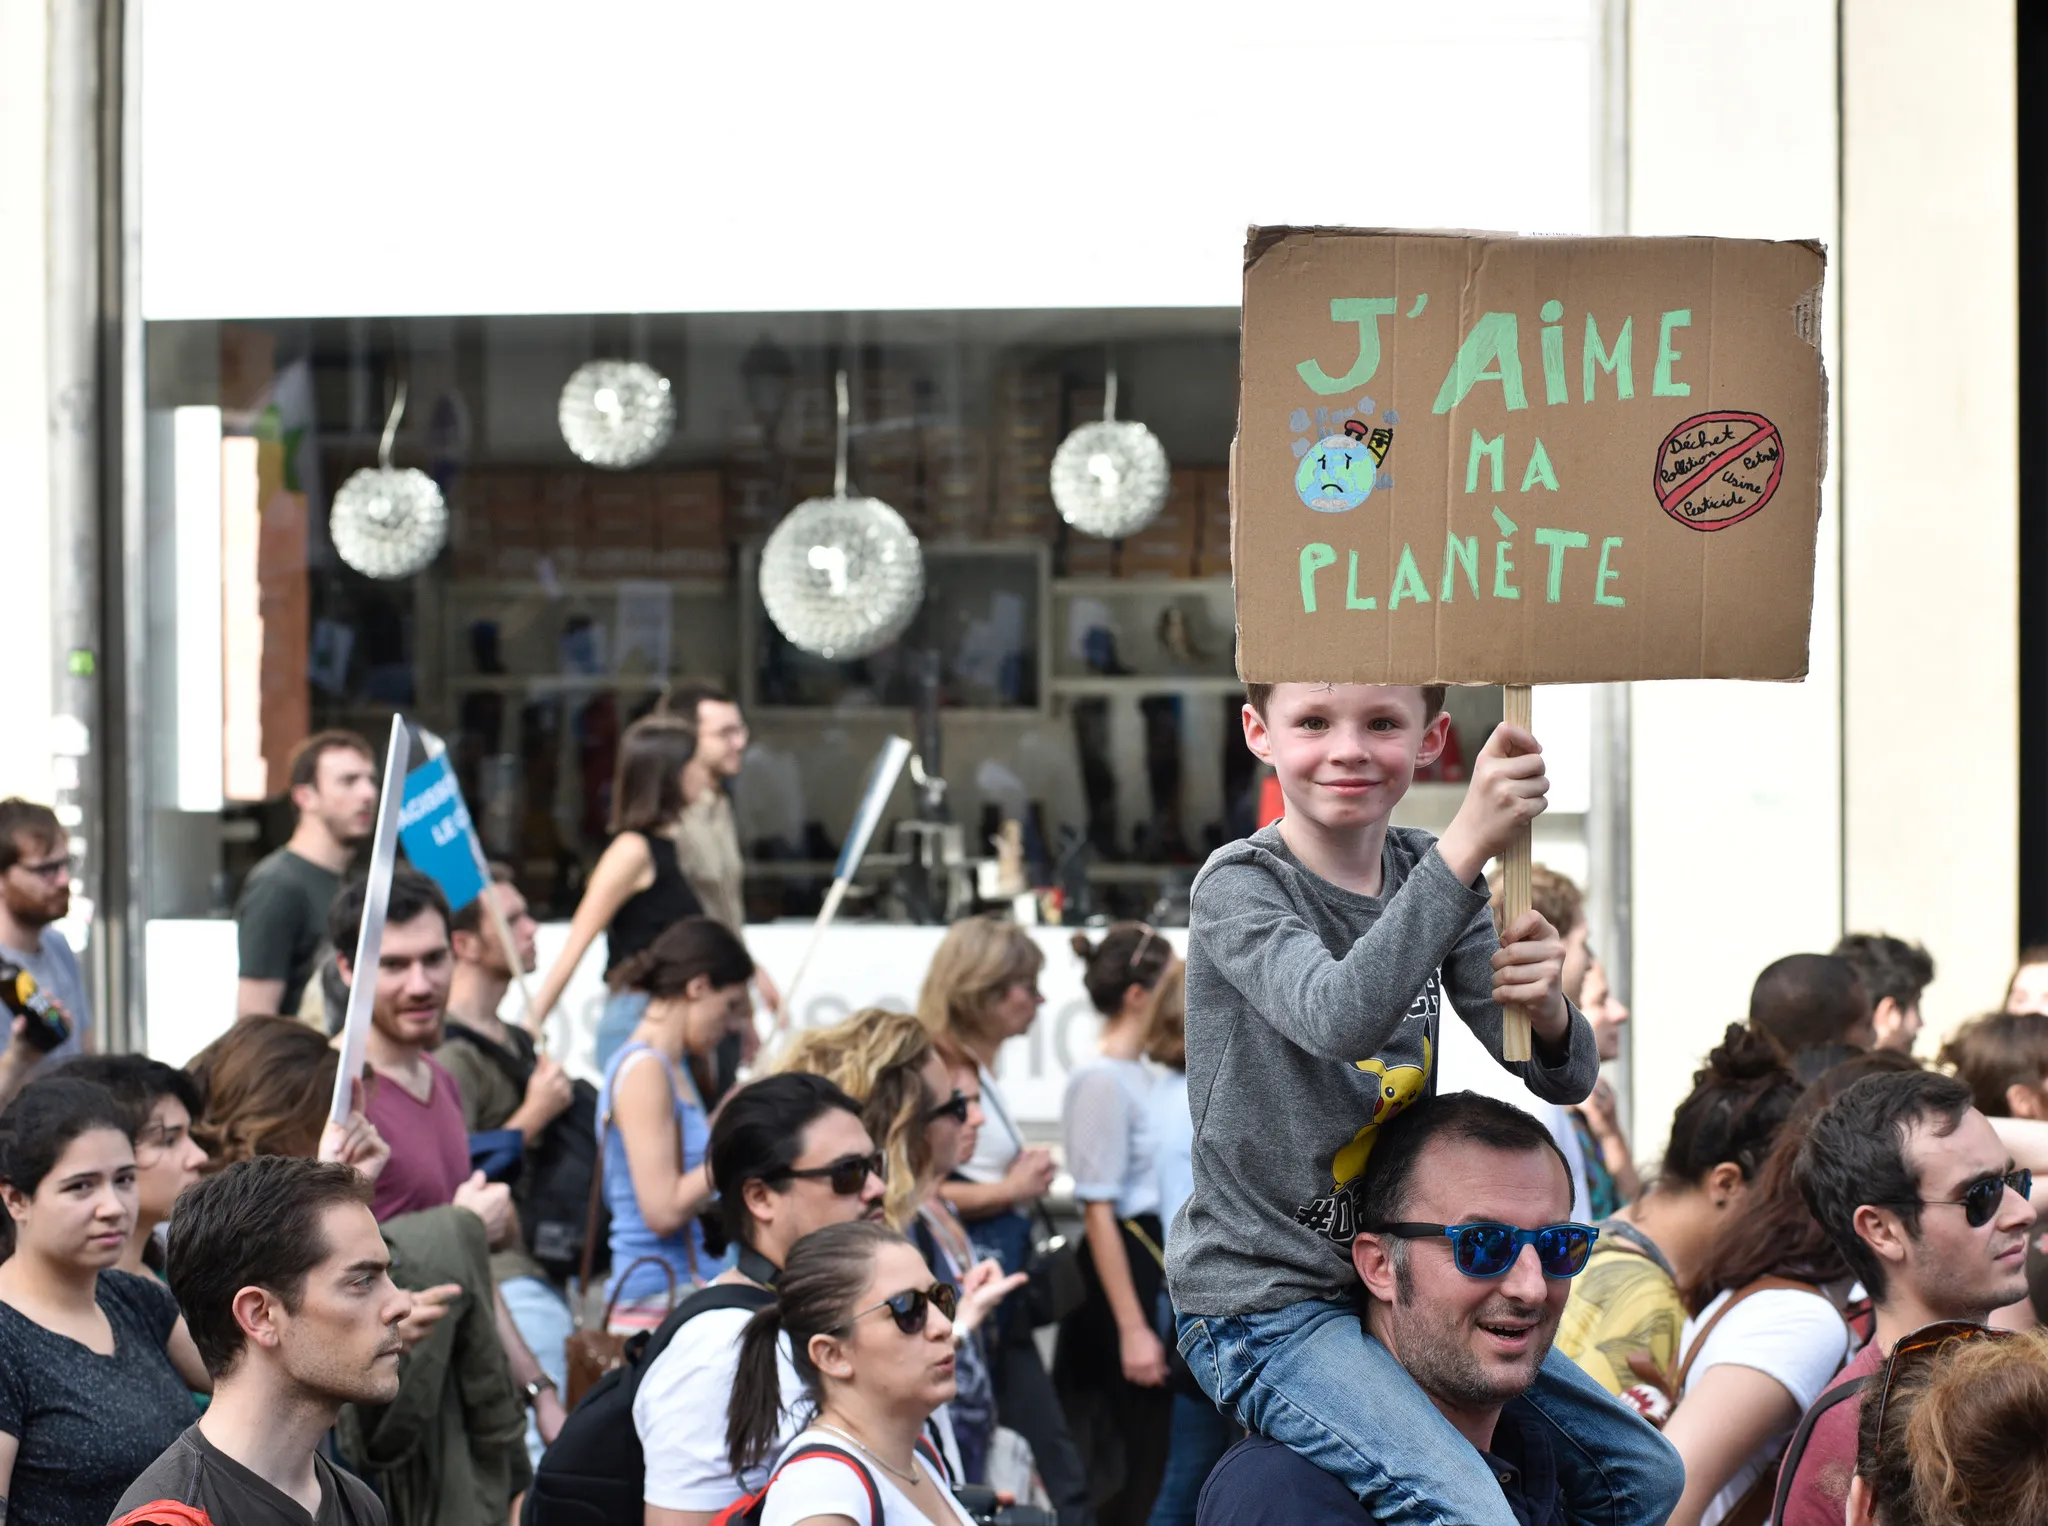 J'AIME
MA
PLANÈTE
Déchet
Pollution
Petrole
Usine
Pesticide
LE